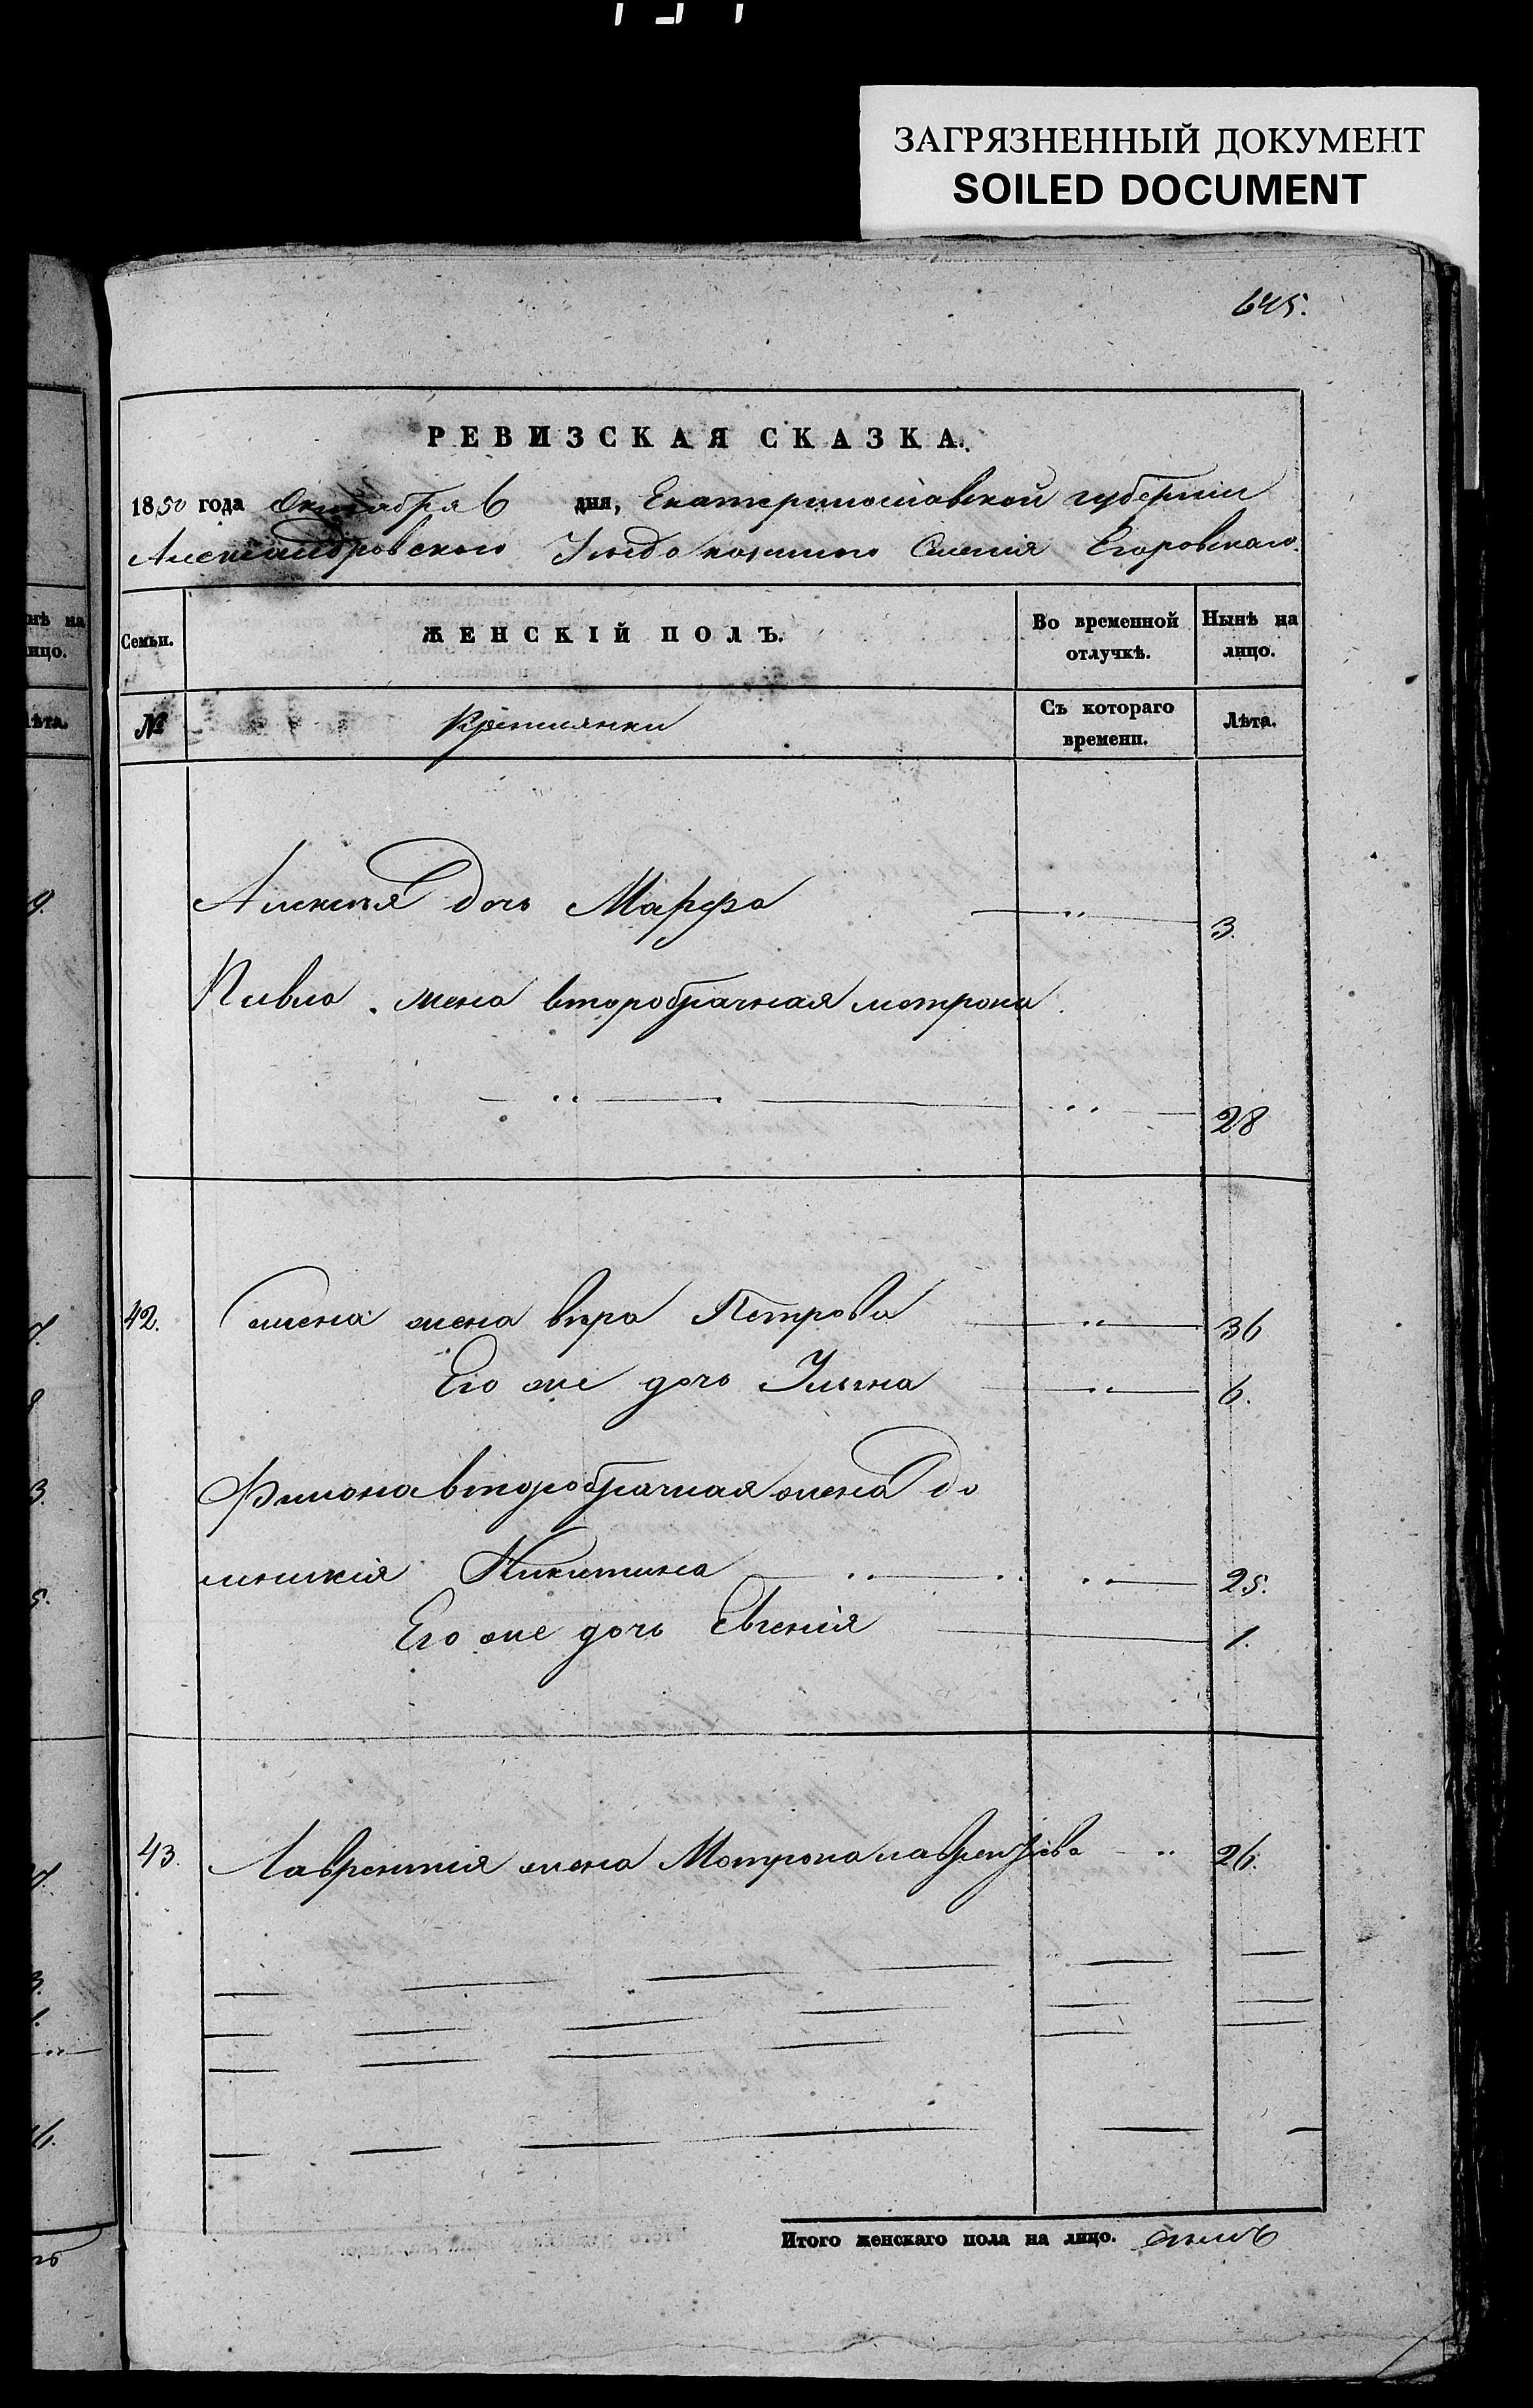 ЗАГРЯЗНЕННЫЙ ДОКУМЕНТ
SOILED DOCUMENT
645.
РЕВИЗСКАЯ СКАЗКА.
1850 года Октября 6 дня, Екатеринославской губернии
Александровского Уезда казенного Селенія Егоровскаго.
Семьи. ЖЕНСКІЙ ПОЛЪ. Во временной отлучкѣ. Нынѣ на лицо.
№ Крестьянки Съ котораго времени. Лѣта.
Алексѣя дочь Марфа 3.
Павла жена второбрачная мотрона
28
42. Семена жена вѣра Петрова 36
Его же дочь Ульяна 6.
Филона второбрачная жена До
мникія Никитина 25.
Его же дочь Евгенія 1.
43. Лаврентія жена Мотрона лаврентіева 26.
Итого женскаго пола на лицо. семь